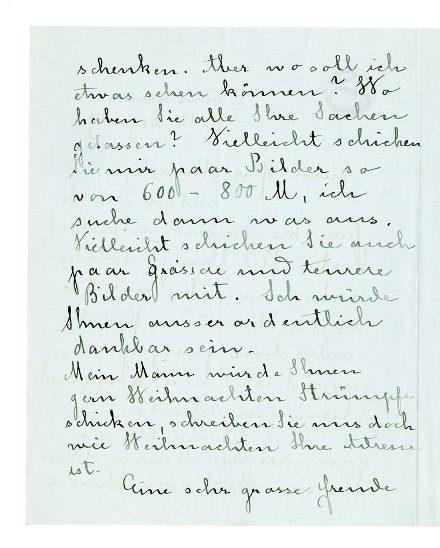 schenken. Aber wo soll ich
etwas sehen können? Wo
haben Sie alle Ihre Sachen
gelassen? Vielleicht schicken
Sie mir paar Bilder so
von 600 - 800 M, ich
suche dann was aus.
Vielleicht schicken Sie auch
paar Grössere und teurere
Bilder mit. Ich würde
Ihnen ausserordentlich
dankbar sein.
Mein Mann würde Ihnen
gern Weihnachten Strümpfe
schicken, schreiben Sie uns doch
wie Weihnachten Ihre Adresse
ist.
Eine sehr grosse freude